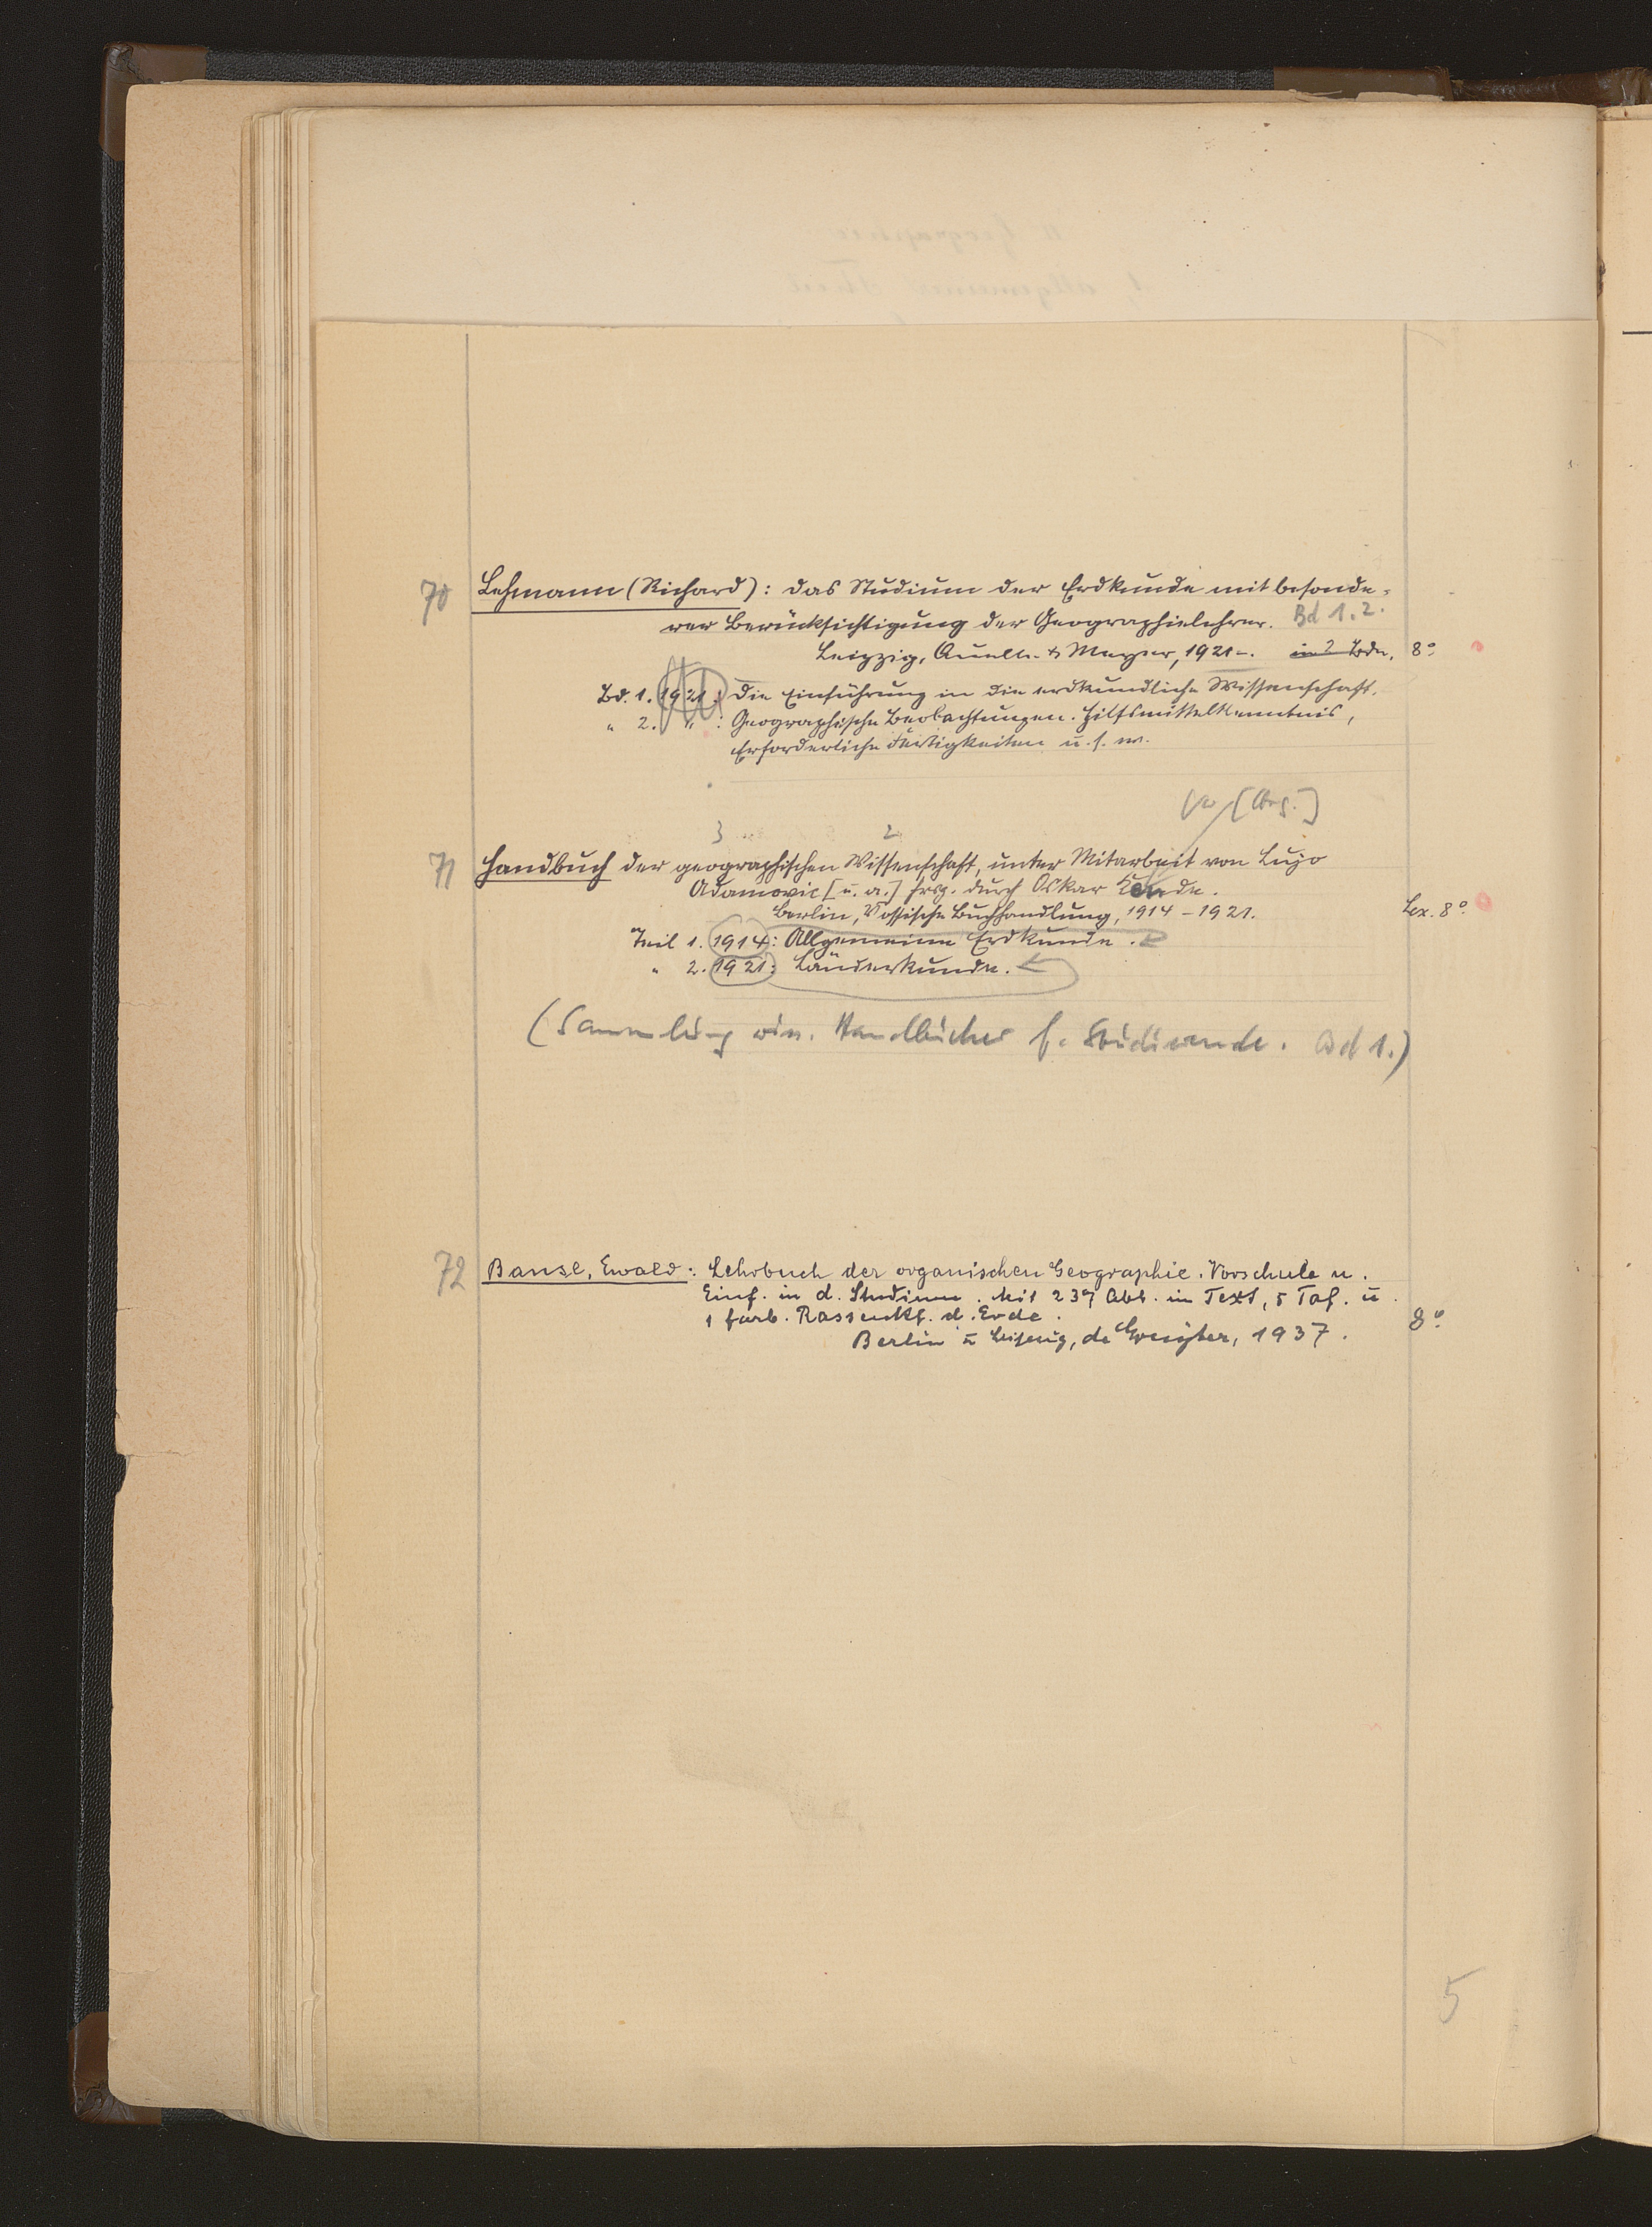 70 Lehmann (Richard): das Studium der Erdkunde mit besonde-
rer Berücksichtigung der Geographielehrer. Bd 1.2.
Leipzig, Quelle & Meyer, 1921-. in 2 Bdn. 8°
Bd. 1. 1921: Die Einführung in die erdkundliche Wissenschaft.
" 2. " : Geographische Beobachtungen. Hilfsmittelkenntnis,
Erforderliche Fertigkeiten u. s. w.
3 2
71 Handbuch der geographischen Wissenschaft, unter Mitarbeit von Lujo
Adamovic [u. a.] hrsg. durch Oskar Kende.
Berlin, Vossische Buchhandlung, 1914-1921. Lex. 8°
Teil 1. 1914: Allgemeine Erdkunde.
" 2. 1921: Länderkunde.
(Sammlung wiss. Handbücher f. Studierende. Bd 1.)
72 Banse, Ewald: Lehrbuch der organischen Geographie. Vorschule u.
Einf. in d. Studium. Mit 239 Abb. im Text, 5 Taf. u
1 farb. Rassenkt. d. Erde. 8°
Berlin u Leipzig, de Gruyter, 1937.
5